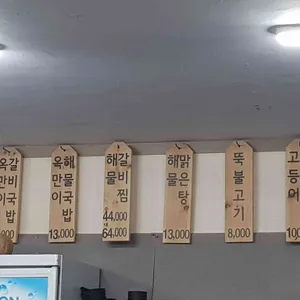 옥만이
갈비국밥
000
옥만이
해물국밥
13,000
해물
갈비찜
44,000
~
64,000
해물
맑은탕
13,000
뚝불고기
8,000
고등어